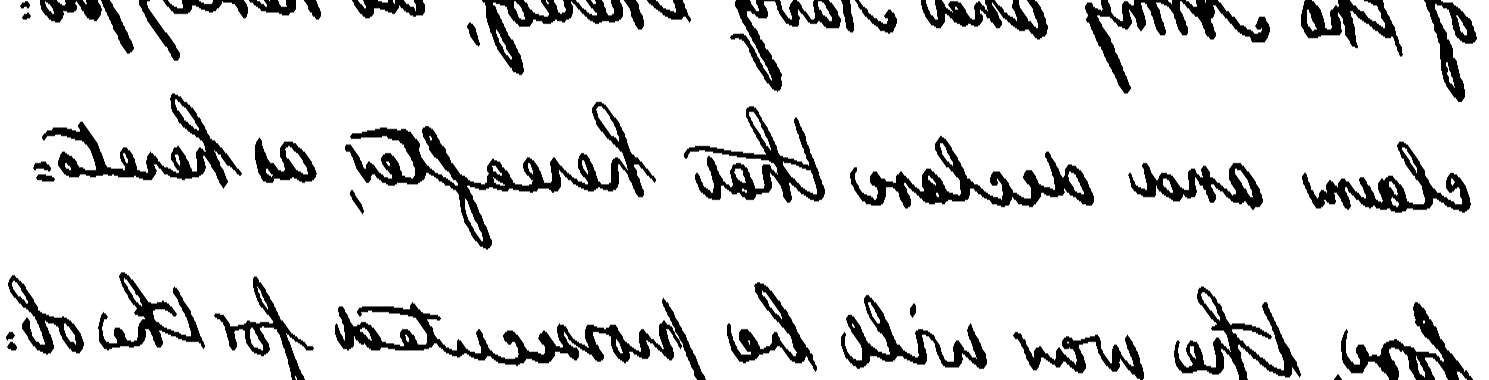 of the Army and Navy thereof,
claim and declare that hereafter, as hereto=
fore, the war will be prosecuted for the ob=